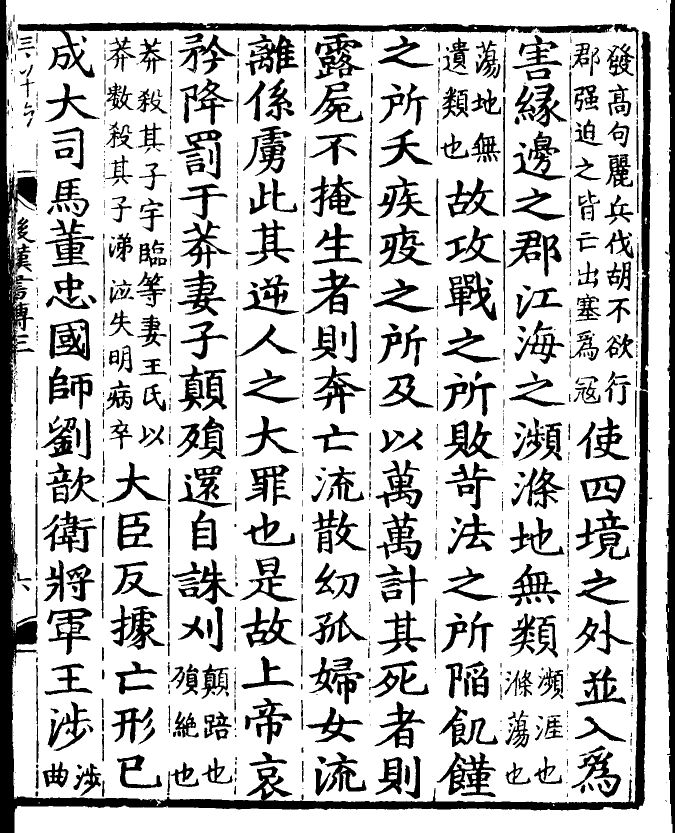 發高句麗兵伐胡不欲行郡强迫之皆亡出塞爲冦使四境之外並入爲
害縁邊之郡江海之瀕滌地無類瀕涯也滌蕩也
蕩地無遺類也故攻戰之所敗苛法之所陷飢饉
之所夭疾疫之所及以萬萬計其死者則
露屍不掩生者則奔亡流散幼孤婦女流
離係虜此其逆人之大罪也是故上帝哀
矜降罰于莽妻子顛殞還自誅刈顛踣也殞絶也
莽殺其子宇臨等妻王氏以莽数殺其子涕泣失明病卒大臣反據亡形已
成大司馬董忠國師劉歆衛將軍王涉涉曲
後漢書傳三
六